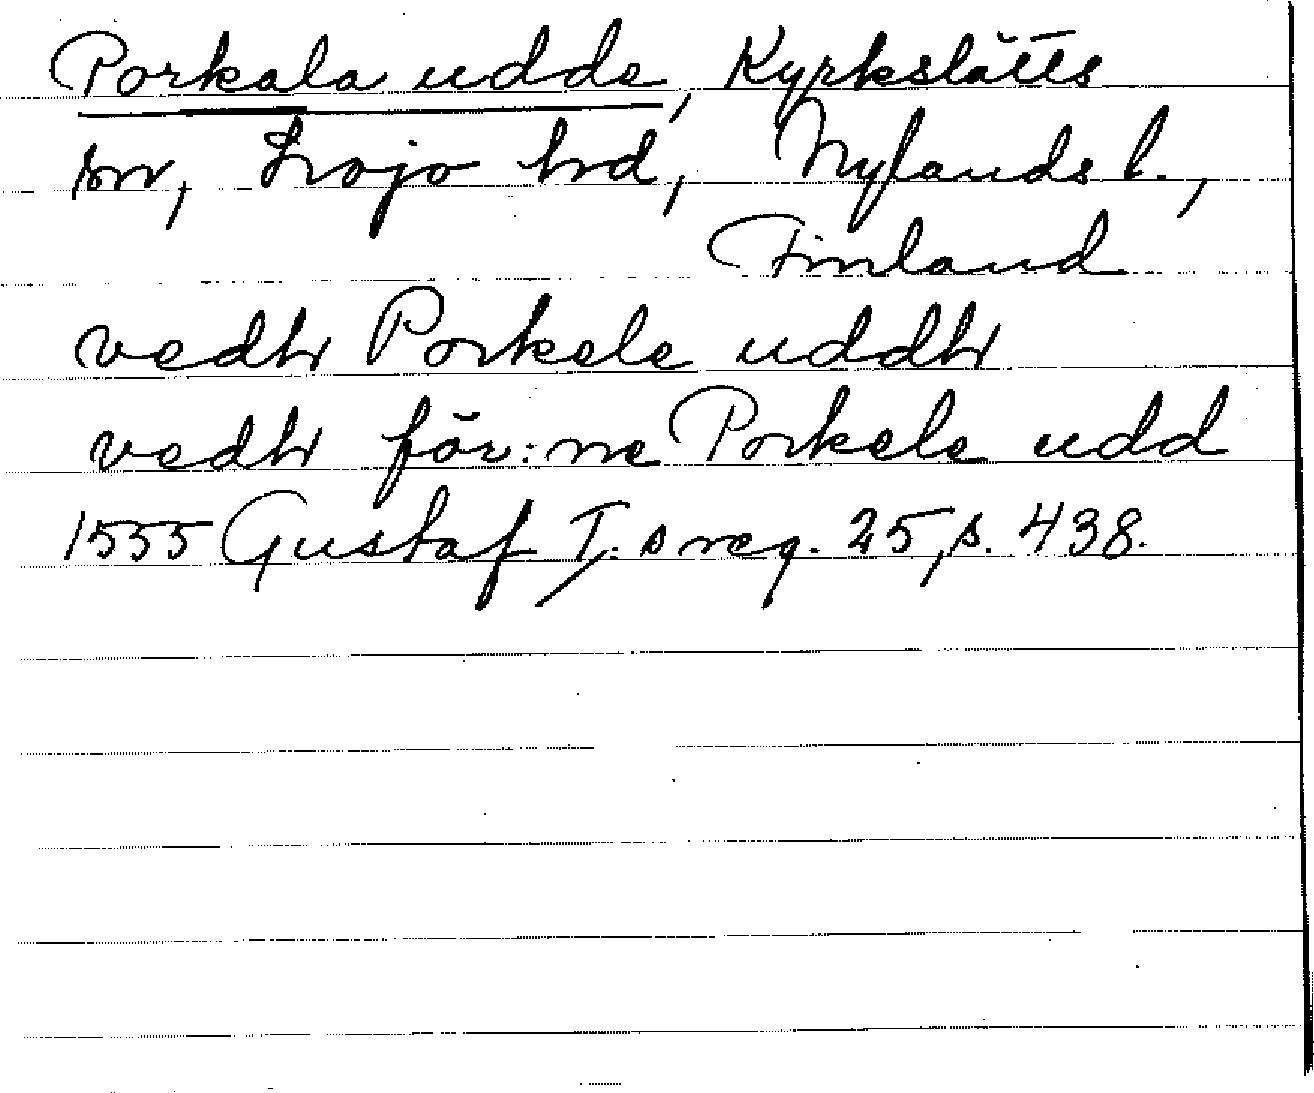 Porkala udde, Kyrkslätts
sn, Lojo hd, Nylands l.,
Finland
vedh Porkele uddh
vedh för:ne Porkele udd
1555 Gustaf I:s reg. 25, s. 438.